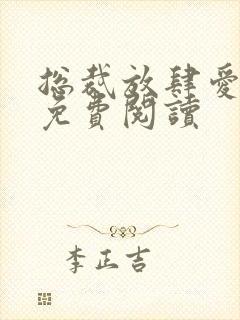 总裁放肆爱
免費閱讀
李正吉